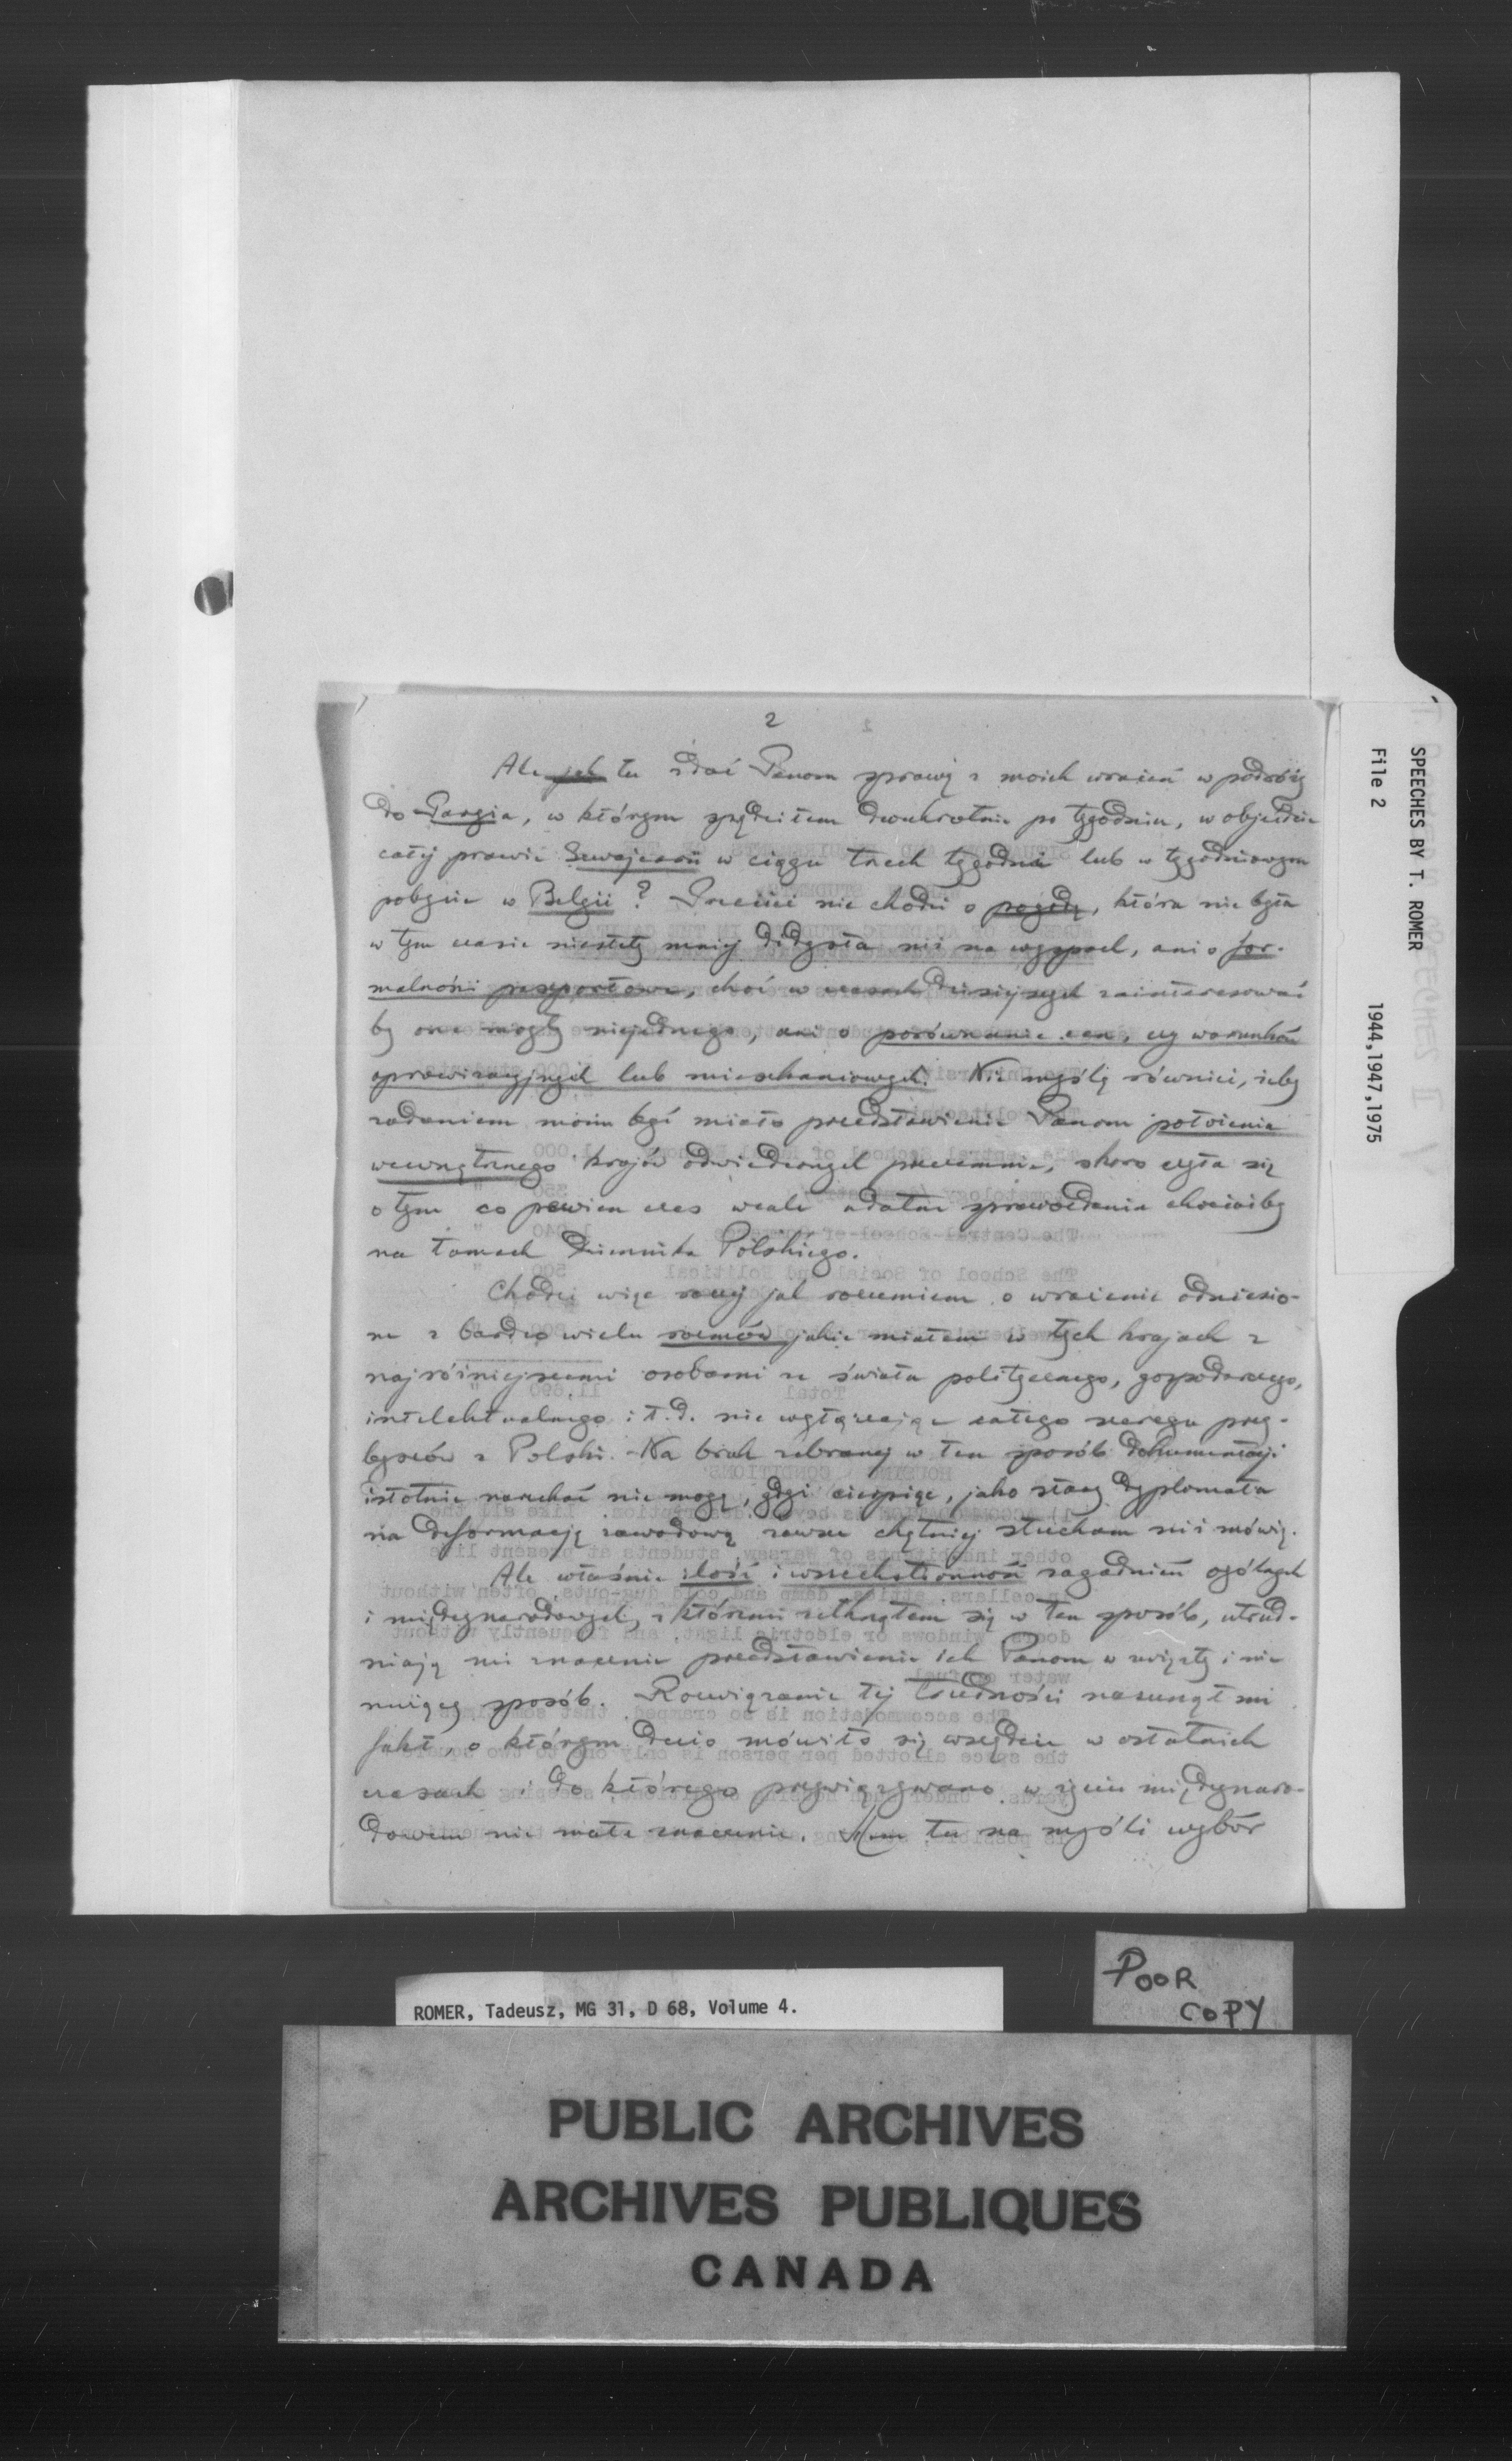 2
Ale jak tu zdać Panom sprawę z moich wrażeń w podróży
do Paryża, w którym spędziłem dwukrotnie po tygodniu, w objeździe
całej prawie Szwajcarii w ciągu trzech tygodni lub w tygodniowym
pobycie w Belgii? Przecież nie chodzi o pogodę, która nie była
w tym czasie niestety mniej dżdżysta niż na wyspach, ani o for-
malności paszportowe, choć w czasach dzisiejszych zainteresować
by one mogły niejednego, ani o porównanie cen, czy warunków
aprowizacyjnych lub mieszkaniowych. Nie myślę również, żeby
zadaniem moim być miało przedstawienie Panom położenia
wewnętrznego krajów odwiedzanych przezemnie, skoro czyta się
o tym co pewien czas wcale udatne sprawozdania chociażby
na łamach Dziennika Polskiego.
Chodzi więc raczej jak rozumiem o wrażenie odniesio-
ne z bardzo wielu rozmów jakie miałem w tych krajach z
najróżniejszemi osobami ze świata politycznego, gospodarczego,
intelektualnego i t.d. nie wyłączając całego szeregu przy-
byszów z Polski. Na brak zebranej w ten sposób dokumentacji
istotnie narzekać nie mogę, gdyż cierpiąc, jako stary dyplomata
na deformację zawodową zawsze chętniej słucham niż mówię.
Ale właśnie ilość i wszechstronność zagadnień ogólnych
i międzynarodowych, z któremi zetknąłem się w ten sposób, utrud-
niają mi znacznie przedstawienie ich Panom w zwięzły i nie
nużący sposób. Rozwiązanie tej trudności nasunął mi
fakt, o którym dużo mówiło się wszędzie w ostatnich
czasach i do którego przywiązywano w życiu międzynaro-
dowem nie małe znaczenie. Mam tu na myśli wybór
SPEECHES BY T. ROMER
File 2 1944,1947,1975
POOR
COPY
ROMER, Tadeusz, MG 31, D 68, Volume 4.
PUBLIC ARCHIVES
ARCHIVES PUBLIQUES
CANADA